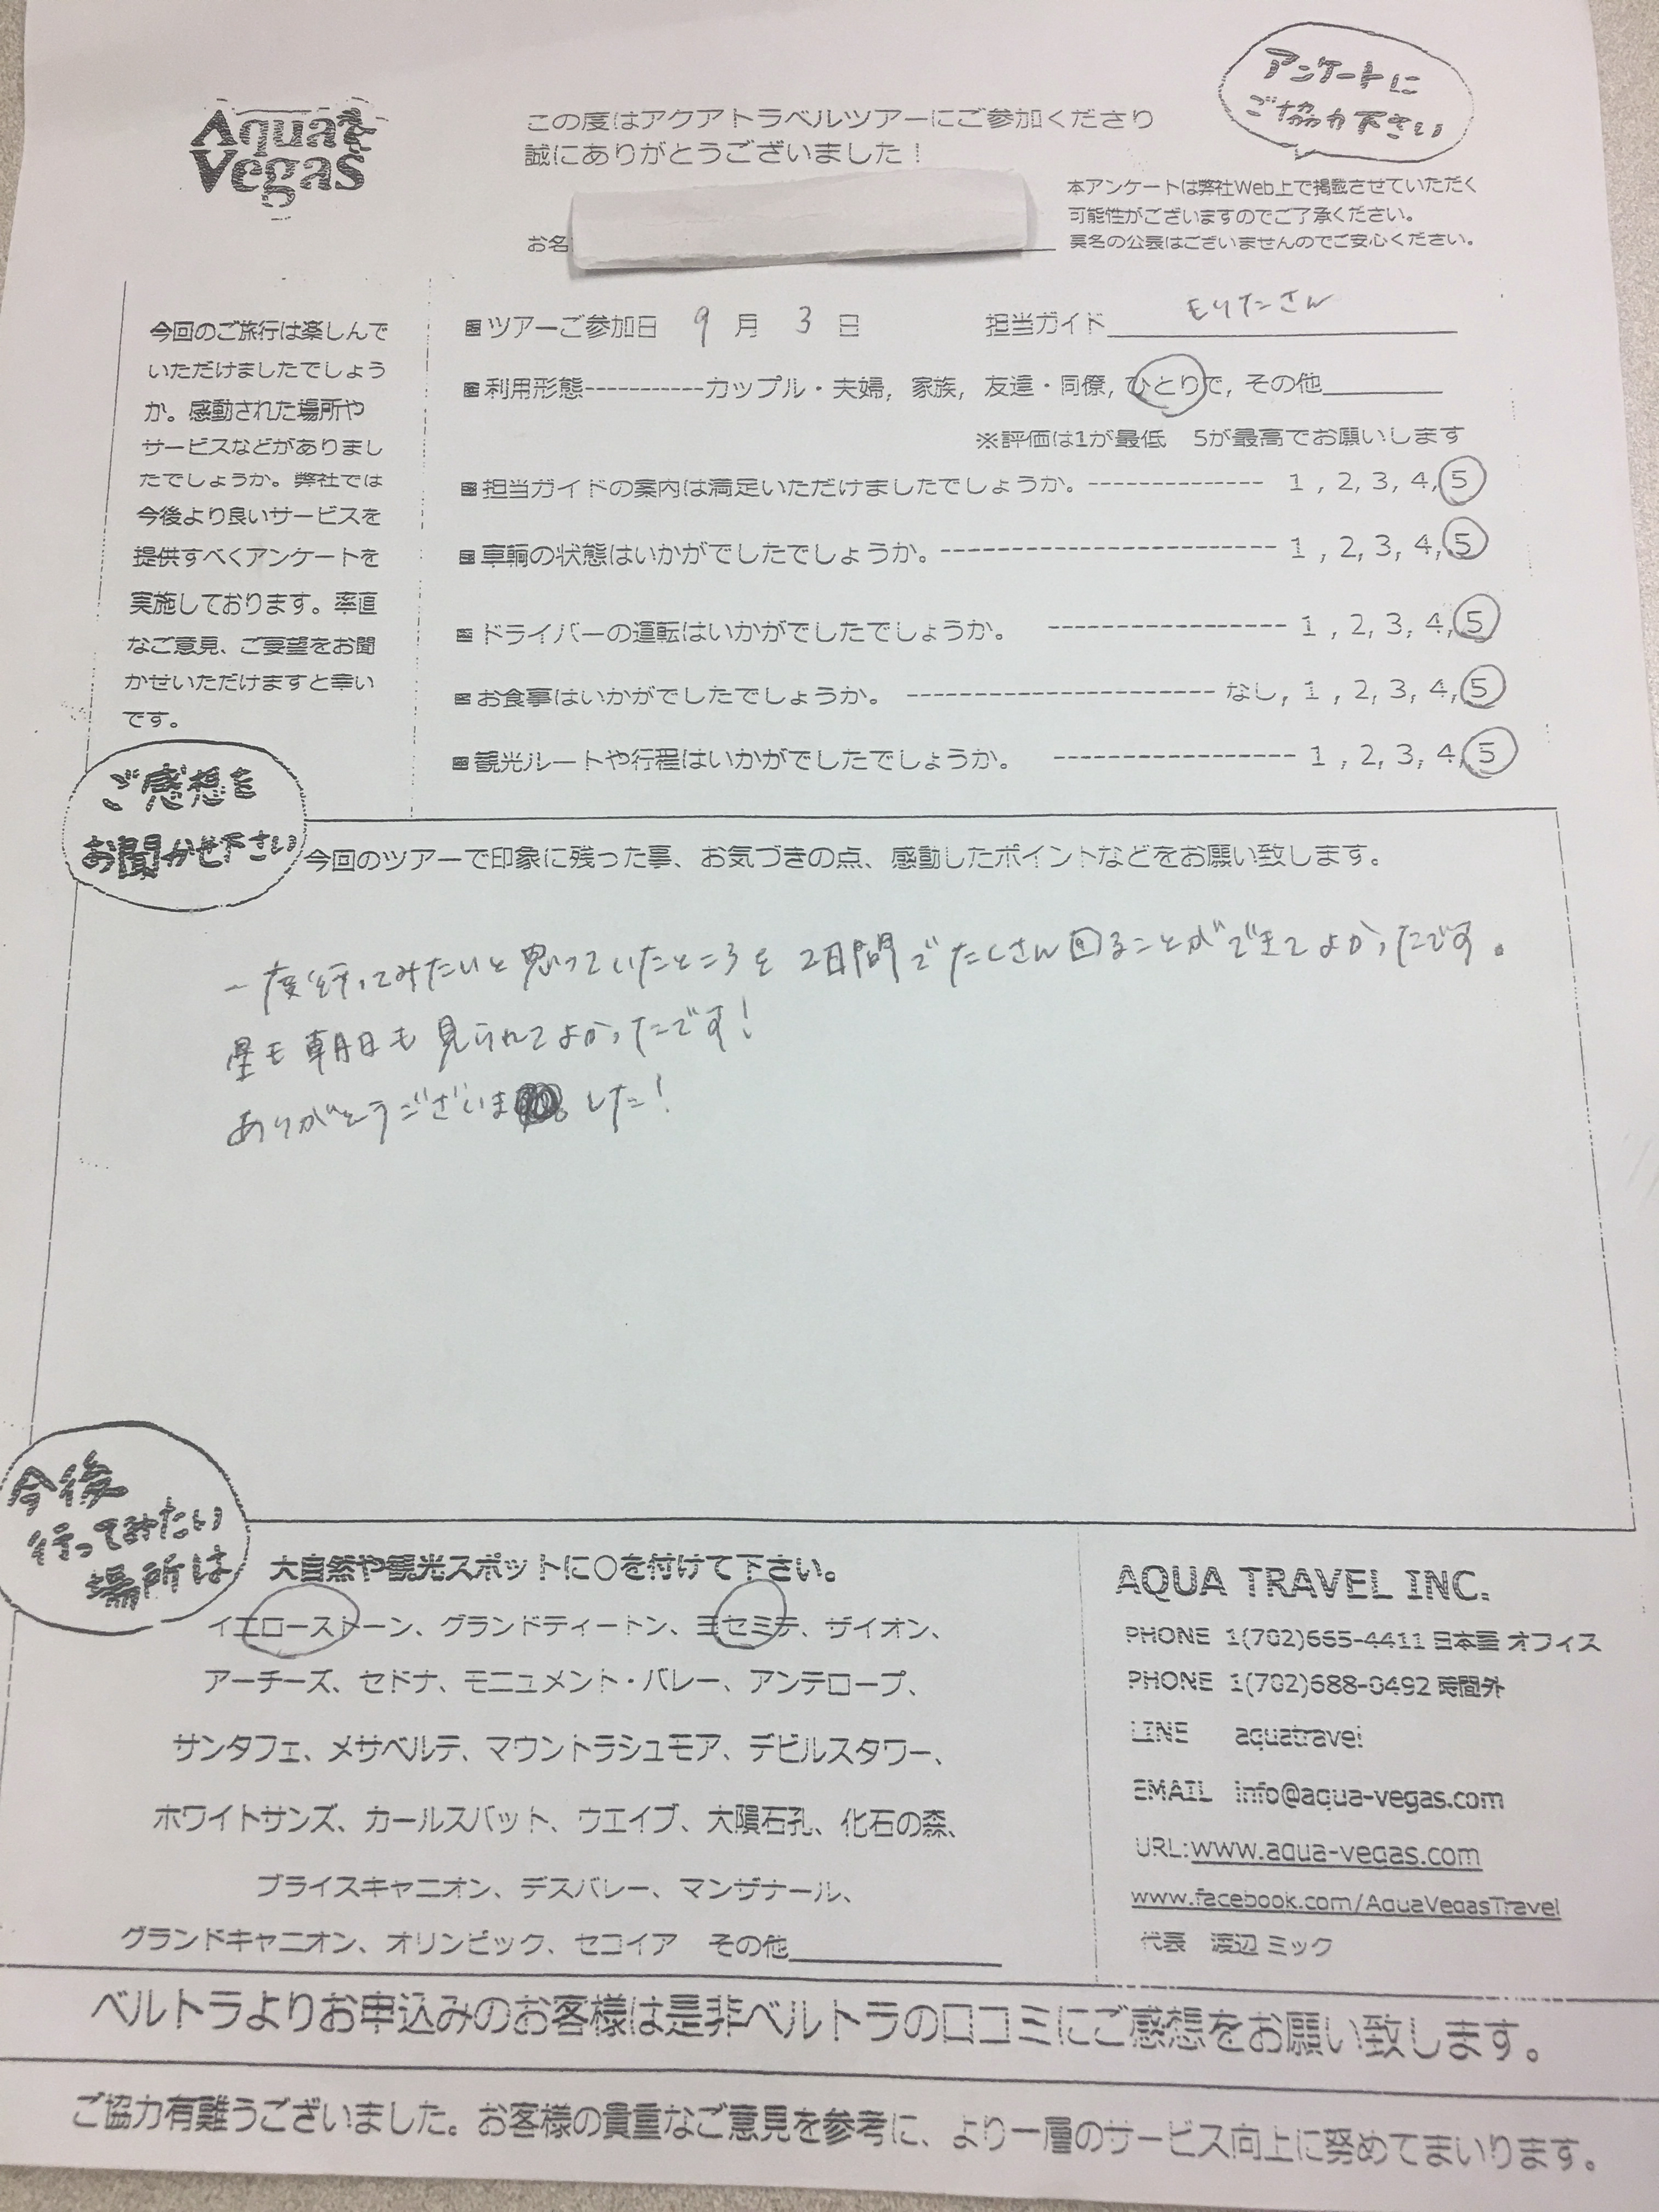 Aqua Vegas
この度はアクアトラベルツアーにご参加くださり
誠にありがとうございました！
アンケートに
ご協力下さい
本アンケートは弊社Web上で掲載させていただく
可能性がございますのでご了承ください。
実名の公表はございませんのでご安心ください。
お名
今回のご旅行は楽しんで
いただけましたでしょう
か。感動された場所や
サービスなどがありまし
たでしょうか。弊社では
今後より良いサービスを
提供すべくアンケートを
実施しております。率直
なご意見、ご要望をお聞
かせいただけますと幸い
です。
ツアーご参加日 9 月 3 日 担当ガイド もりたさん
利用形態-----------カップル・夫婦, 家族, 友達・同僚, ひとりで, その他
※評価は1が最低 5が最高でお願いします
担当ガイドの案内は満足いただけましたでしょうか。-------------- 1 , 2, 3, 4, 5
車輌の状態はいかがでしたでしょうか。-------------------------- 1 , 2, 3, 4, 5
ドライバーの運転はいかがでしたでしょうか。 ------------------ 1 , 2, 3, 4, 5
お食事はいかがでしたでしょうか。 ------------------------ なし, 1 , 2, 3, 4, 5
観光ルートや行程はいかがでしたでしょうか。 ------------------- 1 , 2, 3, 4, 5
ご感想を
お聞かせ下さい
今回のツアーで印象に残った事、お気づきの点、感動したポイントなどをお願い致します。
一度行ってみたいと思っていたところを2日間でたくさん回ることができてよかったです。
星も朝日も見られてよかったです！
ありがとうございました！
今後
行ってみたい
場所は
大自然や観光スポットに○を付けて下さい。
イエローストーン、グランドティートン、ヨセミテ、ザイオン、
アーチーズ、セドナ、モニュメント・バレー、アンテロープ、
サンタフェ、メサベルテ、マウントラシュモア、デビルスタワー、
ホワイトサンズ、カールスバット、ウエイブ、大隕石孔、化石の森、
ブライスキャニオン、デスバレー、マンザナール、
グランドキャニオン、オリンピック、セコイア その他
AQUA TRAVEL INC.
PHONE 1(702)665-4411 日本語 オフィス
PHONE 1(702)688-0492 時間外
LINE aquatravel
EMAIL info@aqua-vegas.com
URL:www.aqua-vegas.com
www.facebook.com/AquaVegasTravel
代表 渡辺 ミック
ベルトラよりお申込みのお客様は是非ベルトラの口コミにご感想をお願い致します。
ご協力有難うございました。お客様の貴重なご意見を参考に、より一層のサービス向上に努めてまいります。